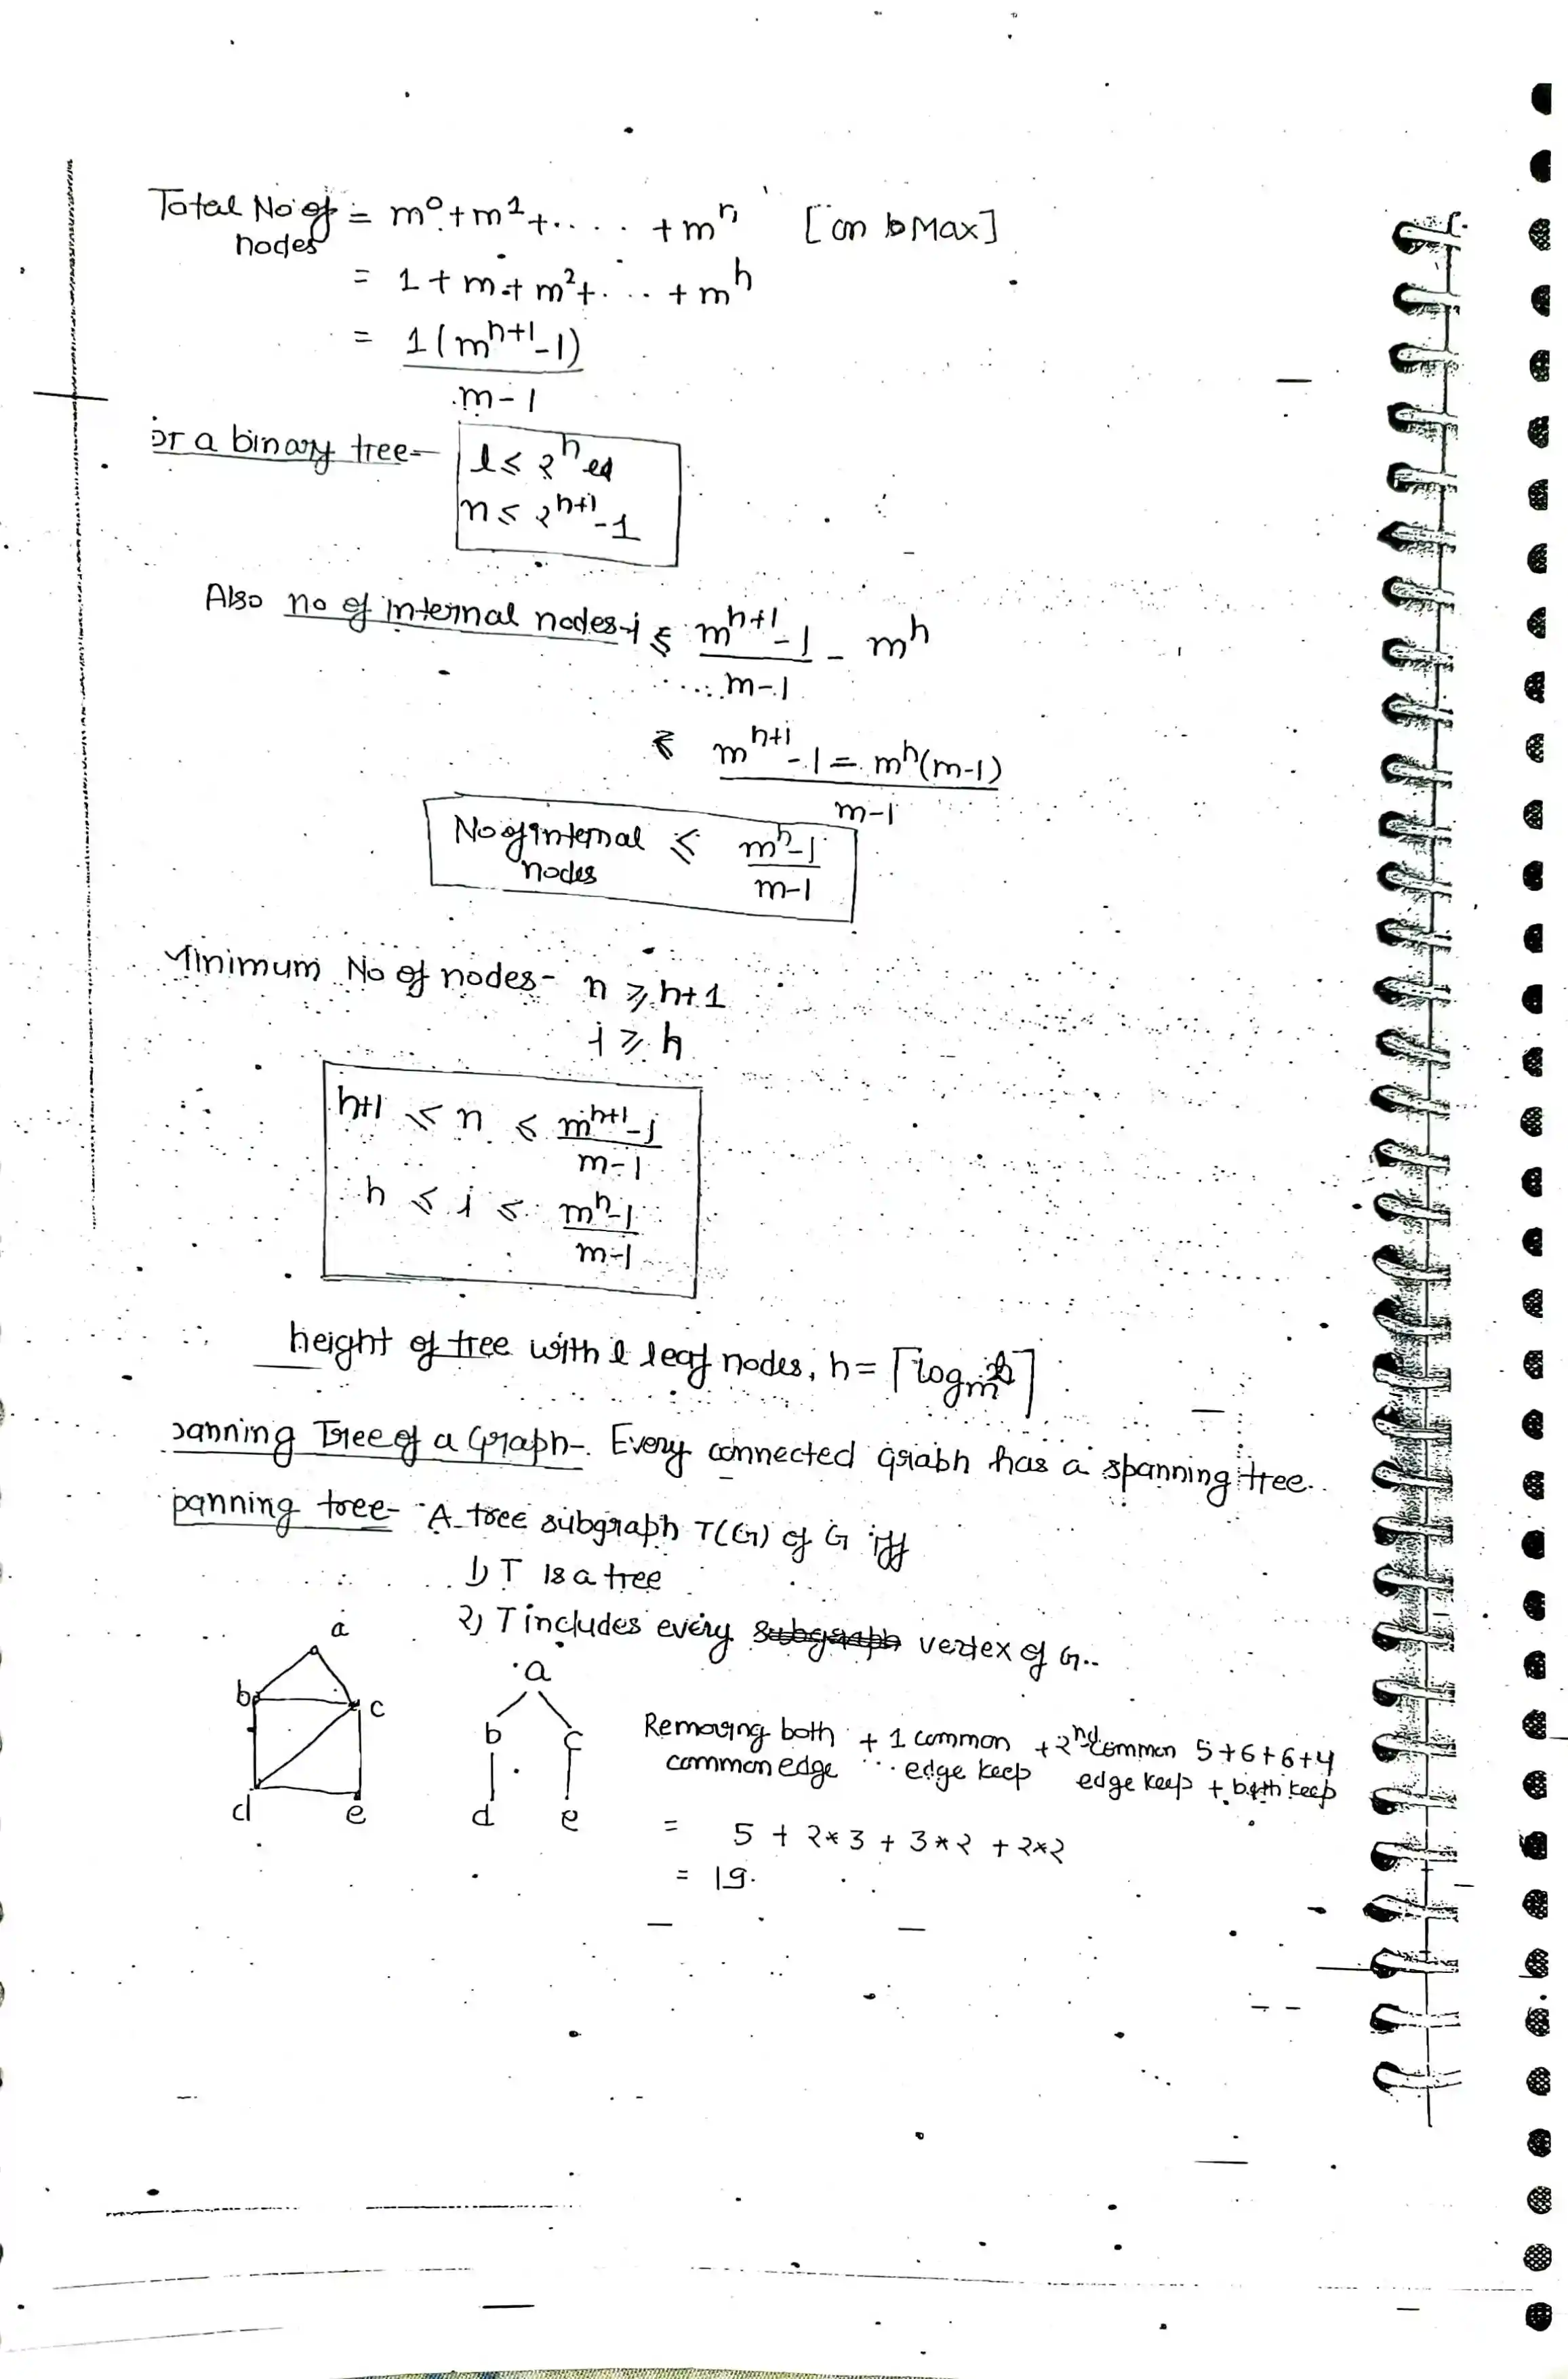 Total No of = m⁰ + m¹ + . . . . + mʰ [on bMax]
nodes
= 1 + m + m² + . . . + mʰ
= 1(mʰ⁺¹-1)
m-1
or a binary tree- l ≤ 2ʰ
n ≤ 2ʰ⁺¹-1
Also no of internal nodes-i ≤ mʰ⁺¹-1 - mʰ
m-1
≤ mʰ⁺¹-1 - mʰ(m-1)
m-1
No of internal ≤ mʰ-1
nodes m-1
Minimum No of nodes- n ≥ h+1
i ≥ h
h+1 ≤ n ≤ mʰ⁺¹-1
m-1
h ≤ i ≤ mʰ-1
m-1
height of tree with l leaf nodes, h = ⌈log m ⌉
panning Tree of a Graph- Every connected graph has a spanning tree.
panning tree- A tree subgraph T(G) of G iff
1) T is a tree
2) T includes every subgraph vertex of G..
a
b
c
d
e
a
b c
d e
Removing both + 1 common + 2nd common 5+6+6+4
common edge edge keep edge keep + both keep
= 5 + 2*3 + 3*2 + 2*2
= 19.